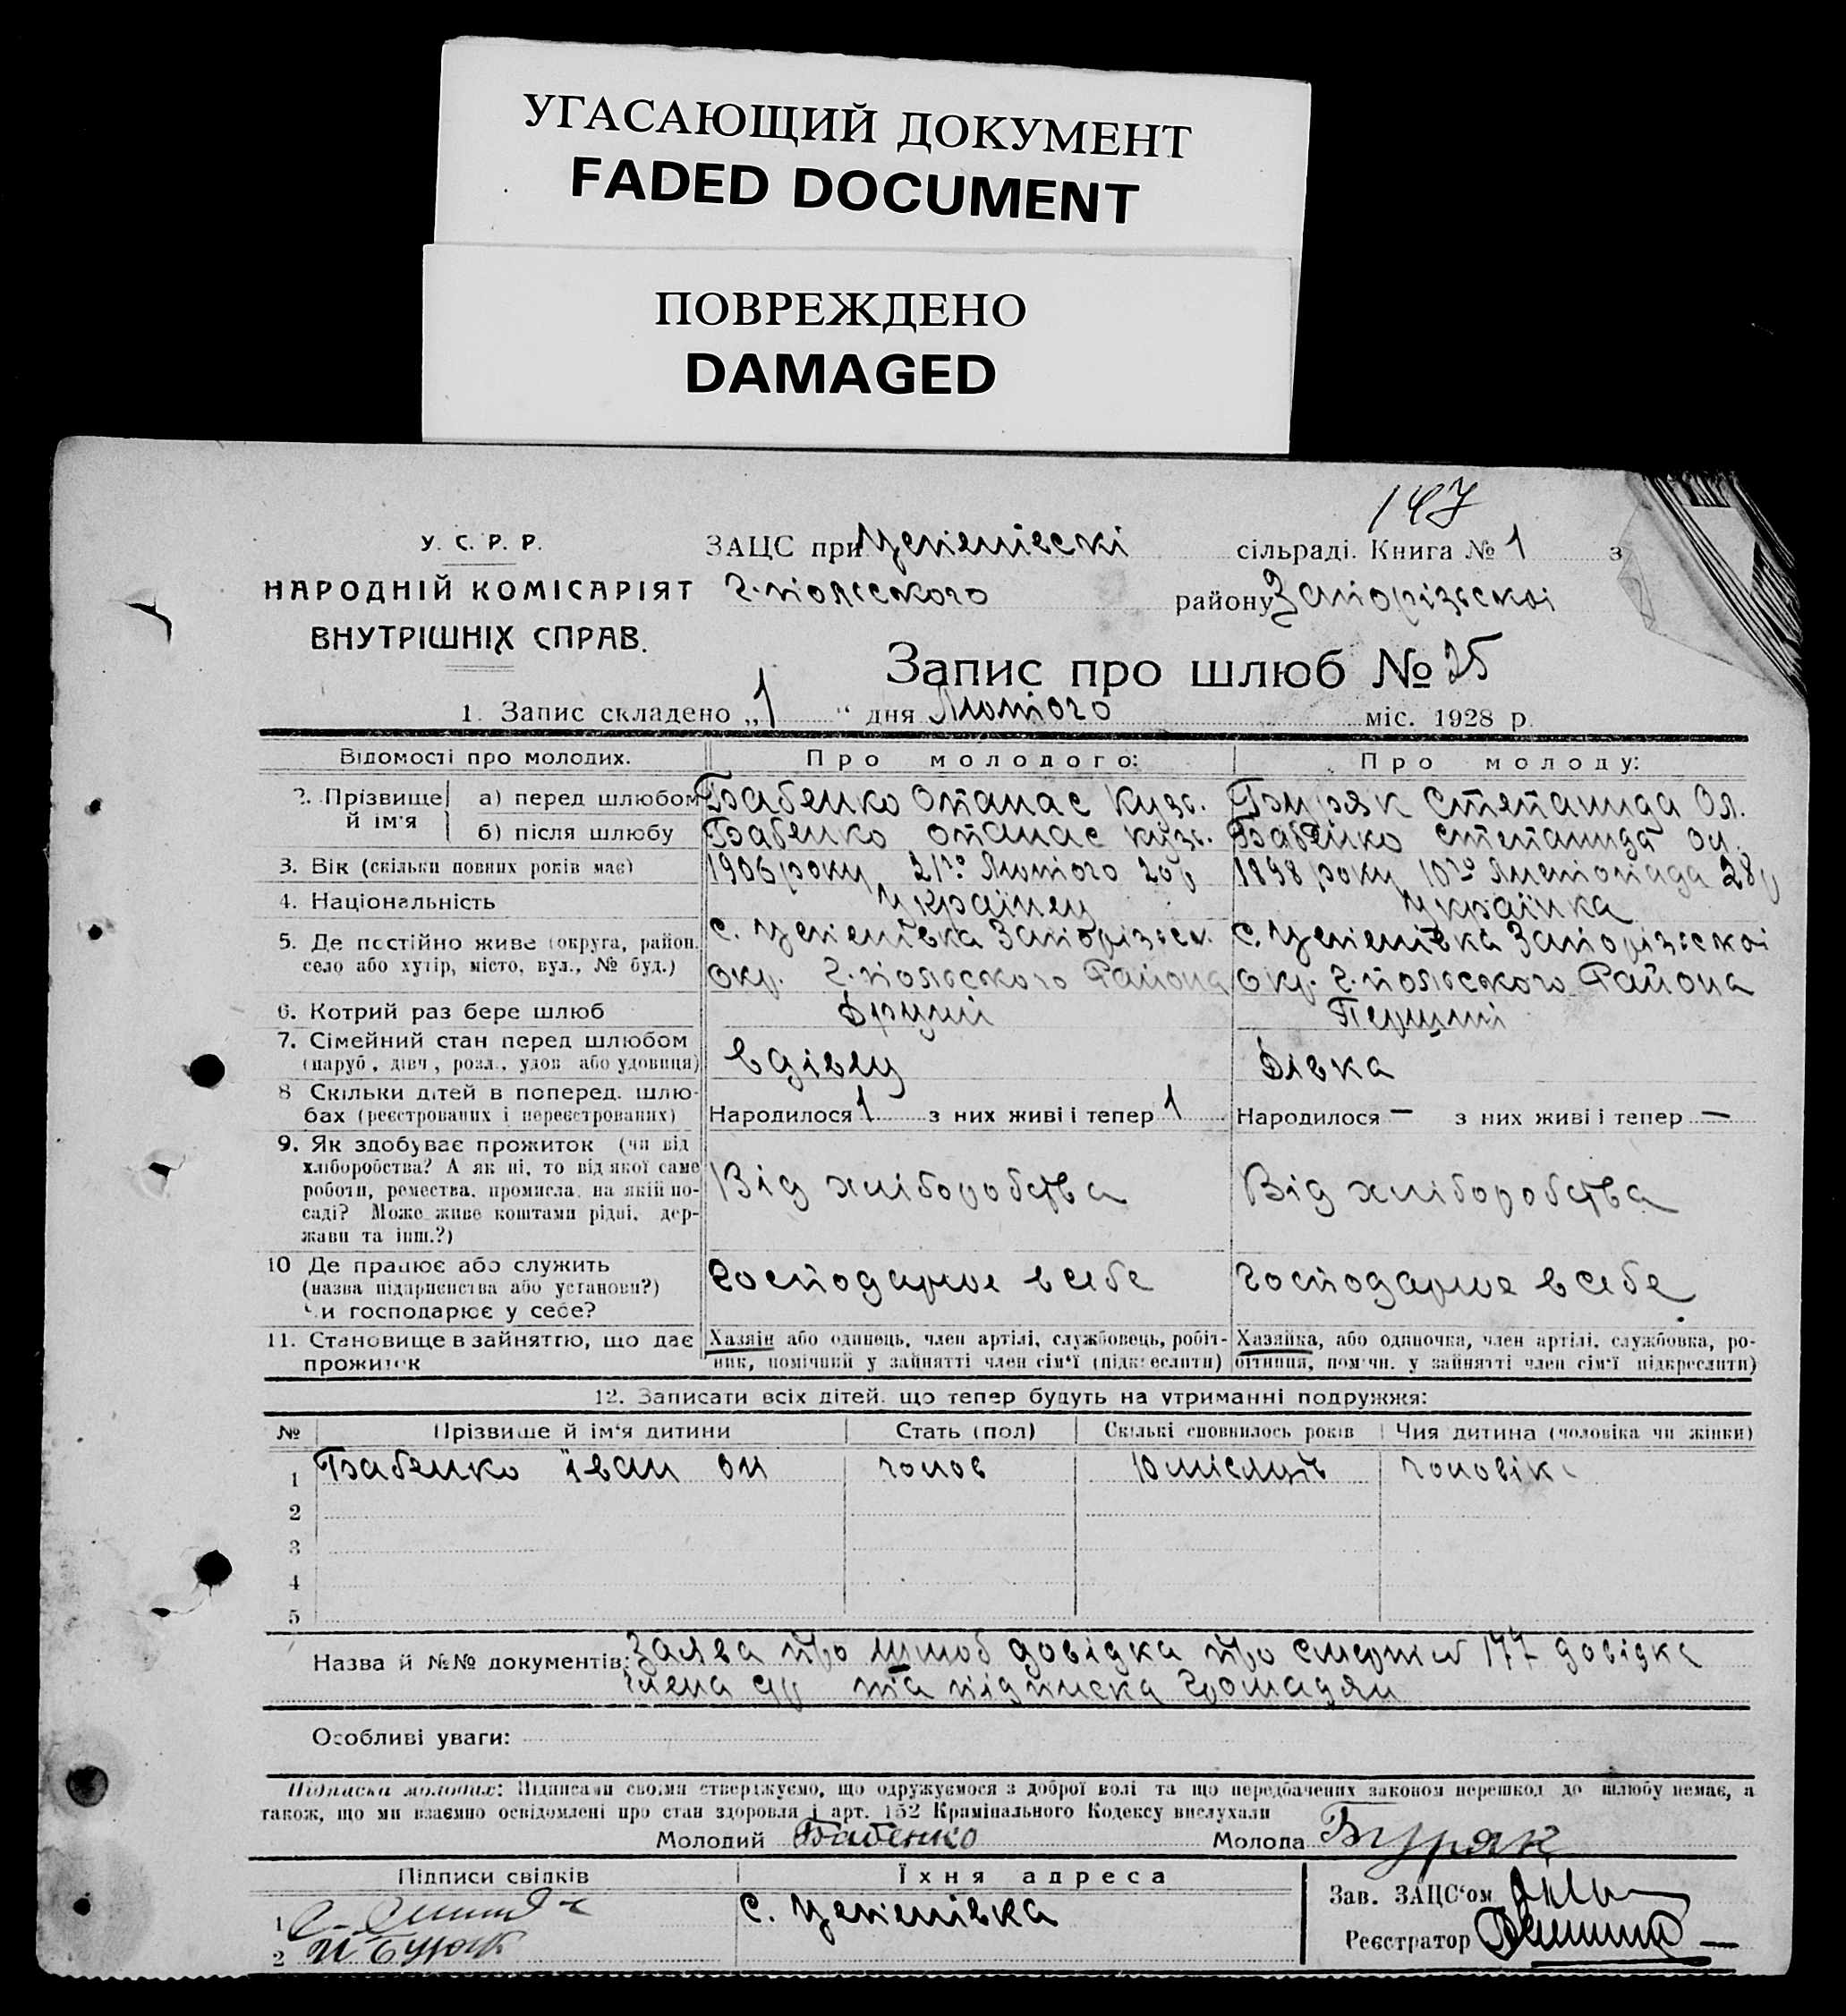 УГАСАЮЩИЙ ДОКУМЕНТ
FADED DOCUMENT
ПОВРЕЖДЕНО
DAMAGED
147
У. С. Р. Р.
НАРОДНІЙ КОМІСАРІЯТ
ВНУТРІШНІХ СПРАВ.
ЗАЦС при сільраді. Книга № 1 з
Г-польского району Запорізьскоі
Запис про шлюб № 25
1. Запис складено „1“ дня Лютого міс. 1928 р.
Відомості про молодих. Про молодого: Про молоду:
2. Прізвище й ім'я
а) перед шлюбом Бабенко Опанас Кузь. Буряк Степанида Ол.
б) після шлюбу Бабенко Опанас Кузь. Бабенко Степанида Ол.
3. Вік (скільки повних років має) 1906 року 21го Лютого 20 р 1898 року 10го Листопада 28 р
4. Національність Українец Українка
5. Де постійно живе (округа, район, с. Цепенівка Запорізьск. с. Цепенівка Запорізьскоі
село або хутір, місто, вул., № буд.) Окр. Г-польского Района Окр. Г-польского Района
6. Котрий раз бере шлюб Другий Перший
7. Сімейний стан перед шлюбом
(паруб., дівч., розл., удов. або удовиця) вдівец Дівка
8 Скільки дітей в поперед. шлю-
бах (реєстрованих і нереєстрованих) Народилося 1 з них живі і тепер 1 Народилося — з них живі і тепер —
9. Як здобуває прожиток (чи від
хліборобства? А як ні, то від якої саме
роботи, ремества, промисла, на якій по- Від хліборобства Від хліборобства
саді? Може живе коштами рідні, дер-
жави та інш.?)
10 Де працює або служить Господарює в себе Господарює в себе
(назва підприємства або установи?)
Чи господарює у себе?
11. Становище в зайняттю, що дає Хазяін або одинець, член артілі, службовець, робіт- Хазяйка, або одиночка, член артілі, службовка, ро-
прожиток ник, помічний у зайнятті член сім'ї (підкреслити) бітниця, помічн. у зайнятті член сім'ї підкреслити)
12. Записати всіх дітей, що тепер будуть на утриманні подружжя:
№ Прізвище й ім'я дитини Стать (пол) Скількі сповнилось років Чия дитина (чоловіка чи жінки)
1 Бабенко Іван чолов 10 місяців чоловіка
2
3
4
5
Назва й №№ документів: Заява про шлюб довідка про смерть № 177 довідка
та підписка громадян
Особливі уваги:
Підписки молодих: Підписами своїми стверджуємо, що одружуємося з доброї волі та що передбачених законом перешкод до шлюбу немає, а
також, що ми взаємно освідомлені про стан здоровля і арт. 152 Кримінального Кодексу вислухали
Молодий Бабенко Молода Буряк
Підписи свідків Їхня адреса
1 с. Цепенівка Зав. ЗАЦС'ом
2 Реєстратор